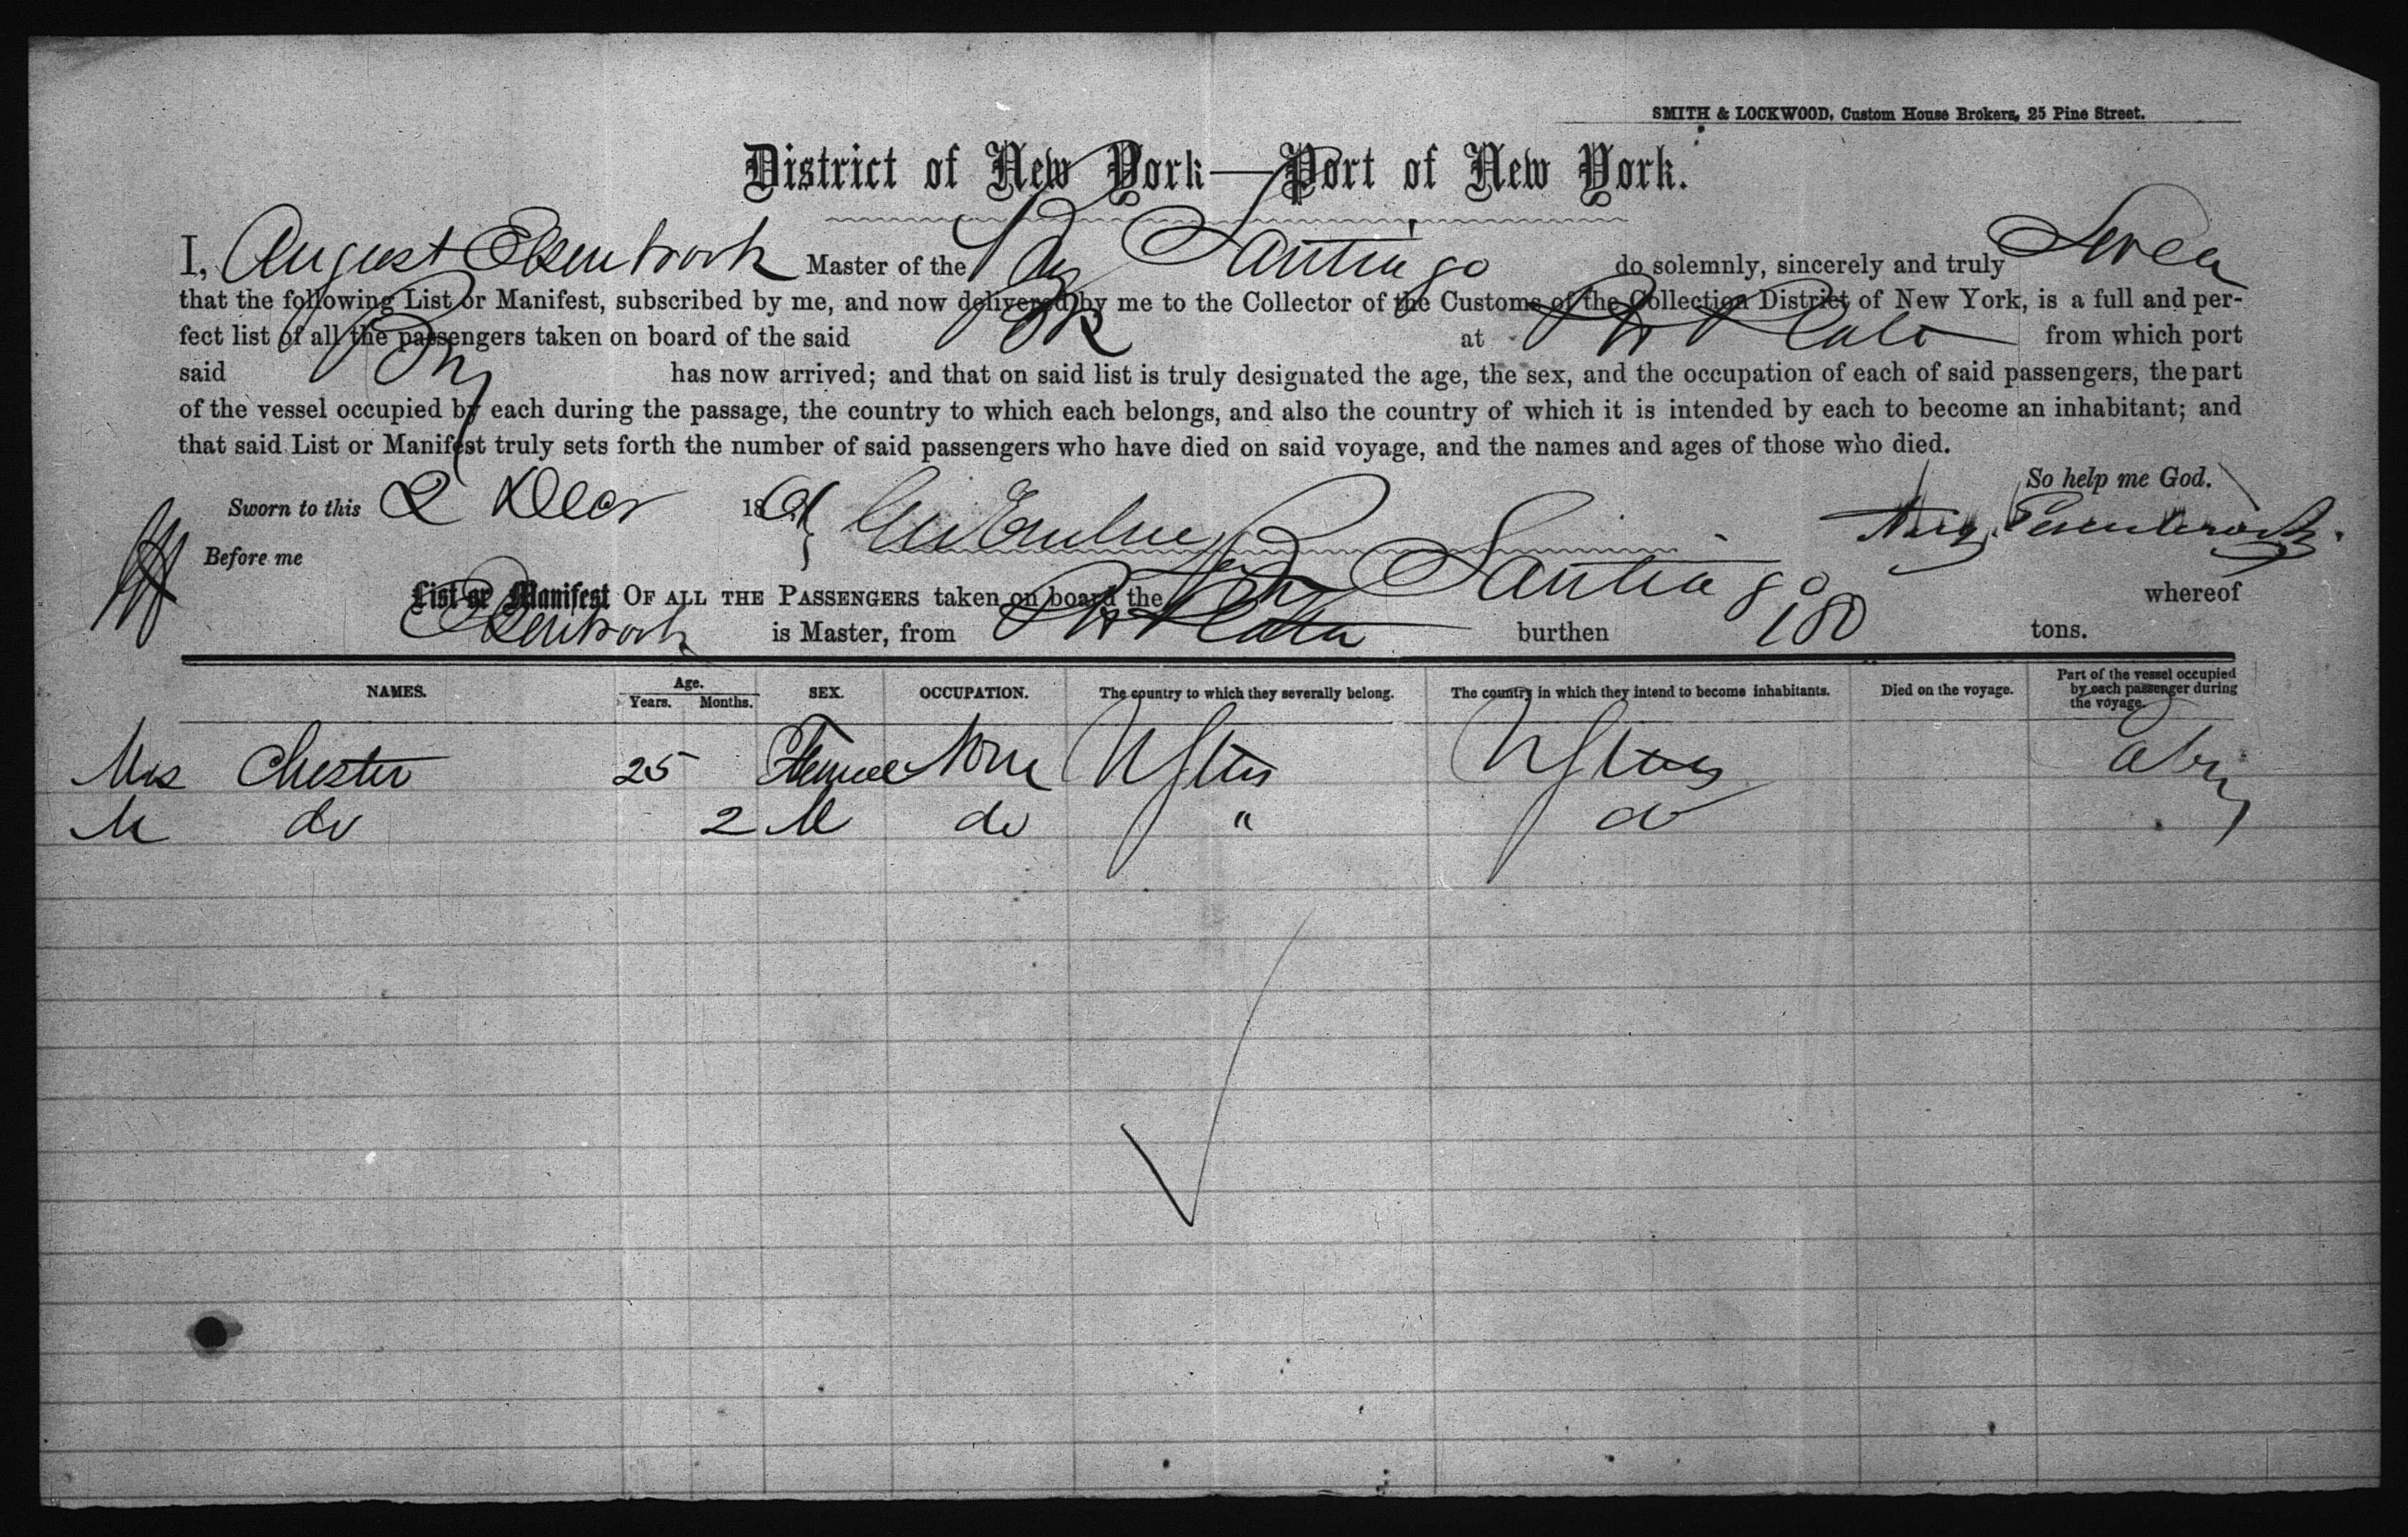 SMITH & LOCKWOOD, Custom House Brokers, 25 Pine Street.
District of New York—Port of New York.
I, August Master of the Santiago do solemnly, sincerely and truly Swear
that the following List or Manifest, subscribed by me, and now delivered by me to the Collector of the Customs of the Collection District of New York, is a full and per-
fect list of all the passengers taken on board of the said at from which port
said has now arrived; and that on said list is truly designated the age, the sex, and the occupation of each of said passengers, the part
of the vessel occupied by each during the passage, the country to which each belongs, and also the country of which it is intended by each to become an inhabitant; and
that said List or Manifest truly sets forth the number of said passengers who have died on said voyage, and the names and ages of those who died.
So help me God.
Sworn to this 2 Decr 186
Before me
List or Manifest OF ALL THE PASSENGERS taken on board the Santiago whereof
is Master, from burthen 180 tons.
NAMES. Age. Years. Months. SEX. OCCUPATION. The country to which they severally belong. The country in which they intend to become inhabitants. Died on the voyage. Part of the vessel occupied by each passenger during the voyage.
Mrs Chester 25 Female None U States U States
M do 2 M do " do